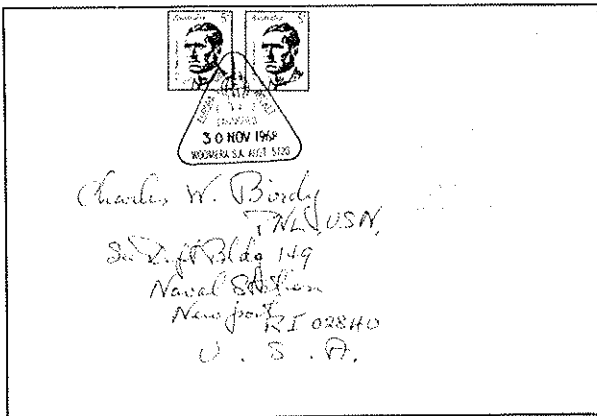 Australia 5c Australia 5c
EUROPA
LAUNCHED
30 NOV 1968
WOOMERA S.A. AUST 5720
Charles W.
USN,
Bldg 149
Naval Station
Newport
RI 02840
U. S. A.